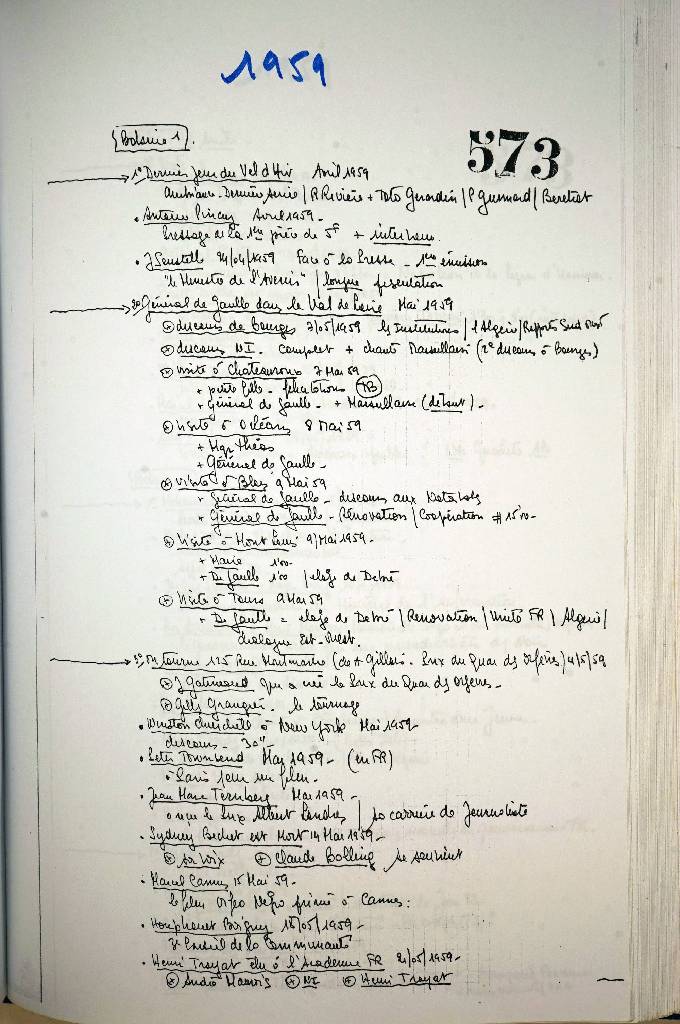 1959
Bobine 1
573
1° Derniers jeux du Vel d'Hiv Avril 1959
Ambiance - Dernière Série / R Rivière + Toto Gerardin / P Guimard /
• Antoine Pinay Avril 1959 -
Pressage de la 1ère pièce de 5F + interview
• J Soustelle 24/04/1959 Face à la Presse - 1ère émission
"le Ministre de l'Avenir" / longue présentation
2° Général de Gaulle dans le Val de Loire Mai 1959
⊕ discours de Bourges 7/05/1959 les Institutions / l'Algérie / Rapports Est Ouest
⊕ discours NI. complet + chants Marseillaise (2e discours à Bourges)
⊕ visite à Chateauroux 7 Mai 59
+ petite fille - félicitations TB
+ Général de Gaulle - + Marseillaise (début) -
⊕ Visite à Orléans 8 Mai 59
+ Mgr
+ Général de Gaulle -
⊕ visite à Blois 9 Mai 59
+ Général de Gaulle - discours aux Notables
+ Général de Gaulle - Rénovation / Coopération # 1'50 -
⊕ Visite à Mont Louis 9/Mai 1959 -
+ Maire 1'00 -
+ De Gaulle 1'00 / éloge de Debré
⊕ Visite à Tours 9 Mai 59
+ De Gaulle = éloge de Debré / Rénovation / Unité FR / Algérie /
dialogue Est-Ouest.
3° On tourne 125 Rue Montmartre (de Gilles. Prix du Quai des Orfèvres) 4/5/59
⊕ J Gatineaud qui a créé le Prix du Quai des Orfèvres -
⊕ Gilles Grangier - le tournage
• Winston Churchill à New York Mai 1959 -
discours - 30" -
• Peter Townsend Mai 1959 - (en FR)
à Paris pour un film -
• Jean Marc Ternberg Mai 1959 -
a reçu le Prix Albert Londres / sa carrière de journaliste
• Sydney Bechet est Mort 14 Mai 1959 -
⊕ sa voix ⊕ Claude Bolling se souvient
• Marcel Camus 15 Mai 59 -
le film Orfeo Negro primé à Cannes :
• Houphouet Boigny 18/05/1959 -
Conseil de la Communauté
• Henri Troyat élu à l'Académie FR 21/05/1959 -
⊕ André Maurois ⊕ NI ⊕ Henri Troyat